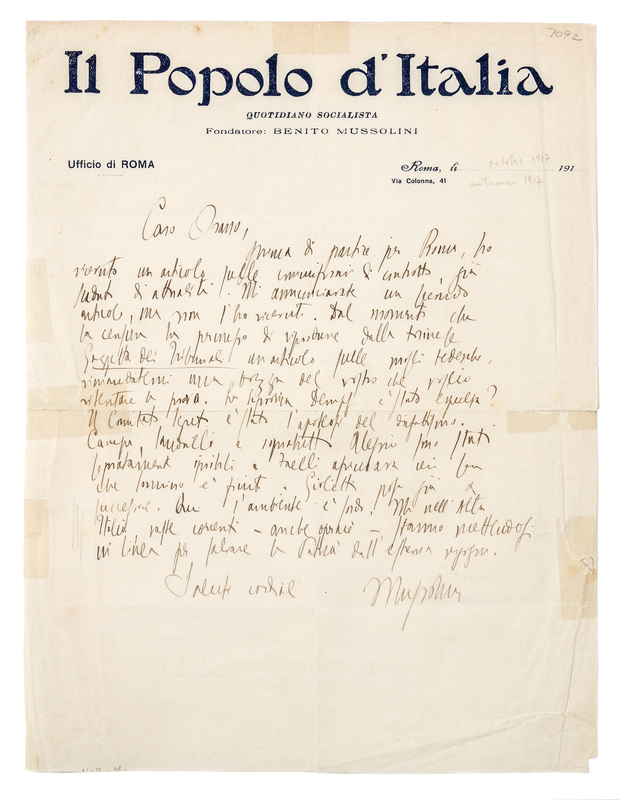 7092
Il Popolo d'Italia
QUOTIDIANO SOCIALISTA
Fondatore: BENITO MUSSOLINI
Ufficio di ROMA
Roma, li ottobre 1917 191
Via Colonna, 41 autunno 1917
Caro Orano,
prima di partire per Roma, ho
ricevuto un articolo sulle di contratto, già
di attualità. Mi annunciavate un secondo
articolo, ma non l'ho ricevuto. Dal momento che
la censura ha permesso di riprodurre dalla torinese
Gazzetta dei Tribunali un articolo sulle mogli tedesche,
rimandatemi una bozza del vostro che voglio
ritentare la prova. La signorina è stata espulsa?
Il Comitato segreto è stato l'apoteosi del disfattismo.
Canepa, e soprattutto Alessio sono stati
ignobili. a
che Sonnino è finito. Giolitti già a
succedere. Qui l'ambiente è sordo. Ma nell'Alta
Italia vaste correnti - anche operaie - stanno mettendosi
in linea per salvare la Patria dall'estrema vergogna.
Saluti cordiali. Mussolini